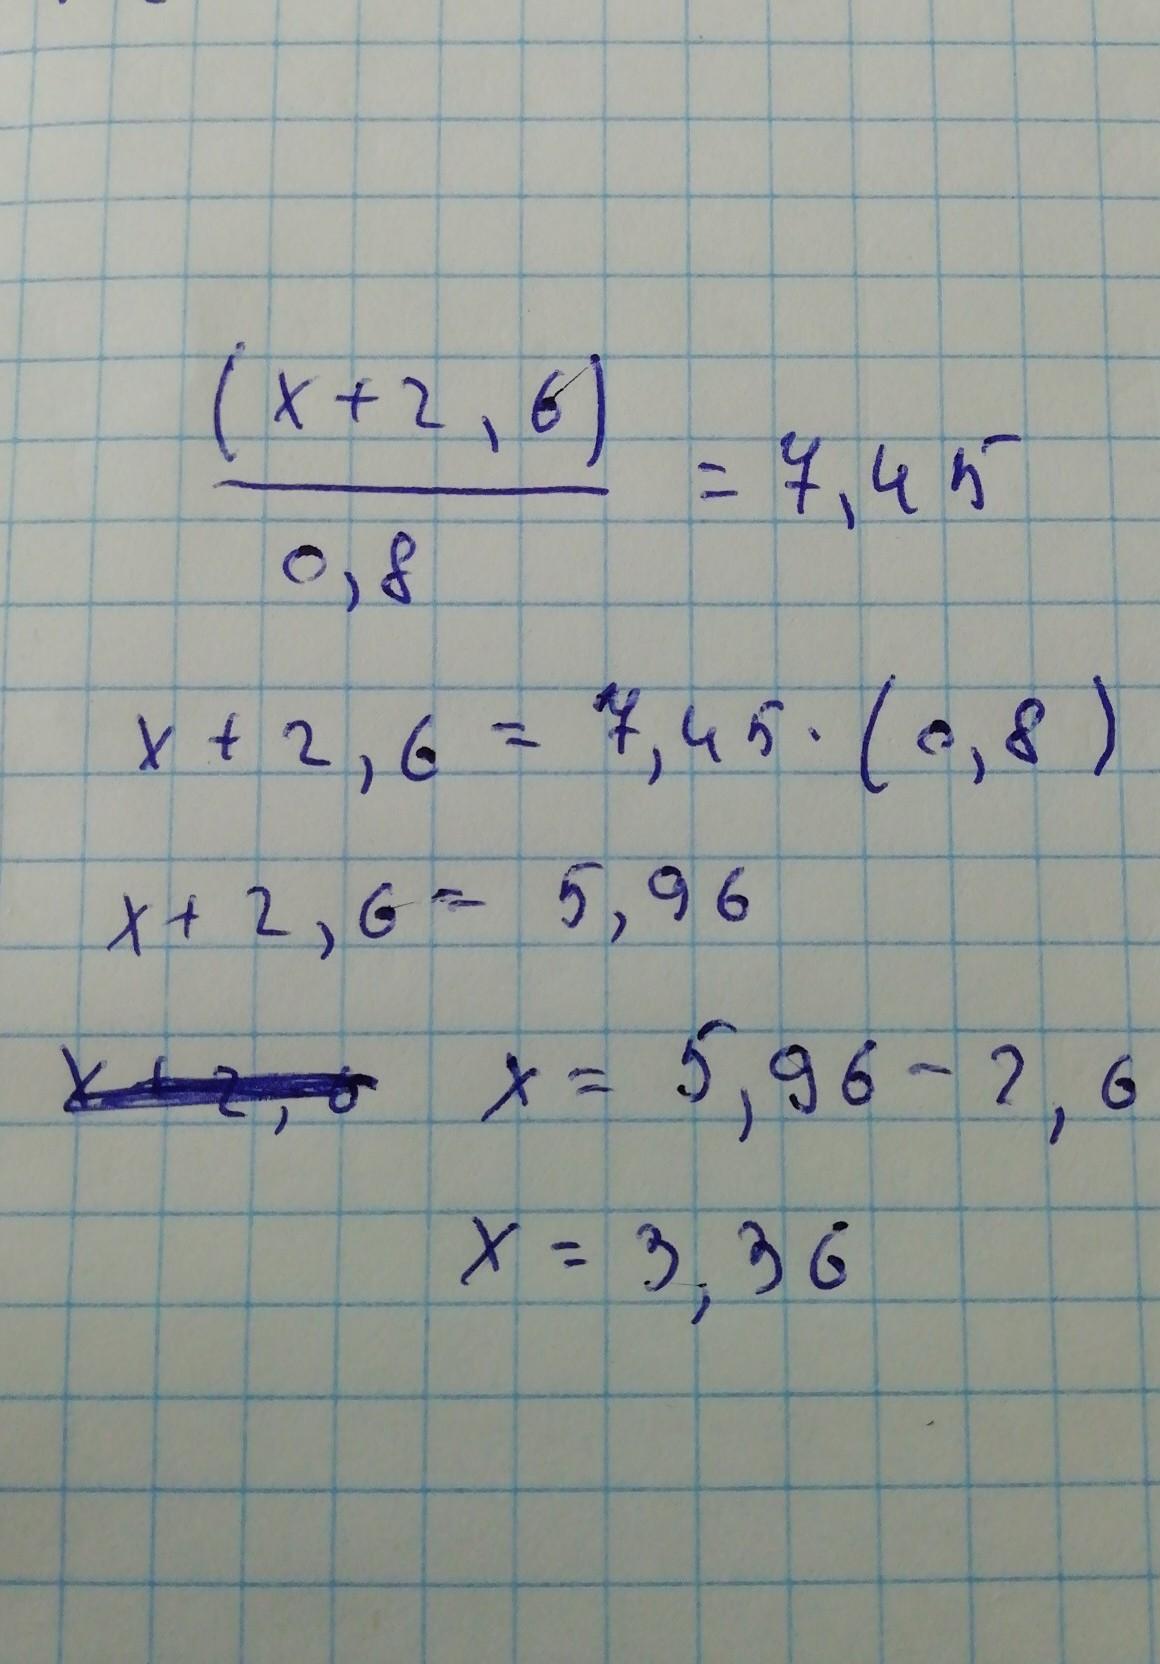 (x+2,6)
0,8
= 7,45
x + 2,6 = 7,45 · (0,8)
x + 2,6 = 5,96
x + 2,6 x = 5,96 - 2,6
x = 3,36